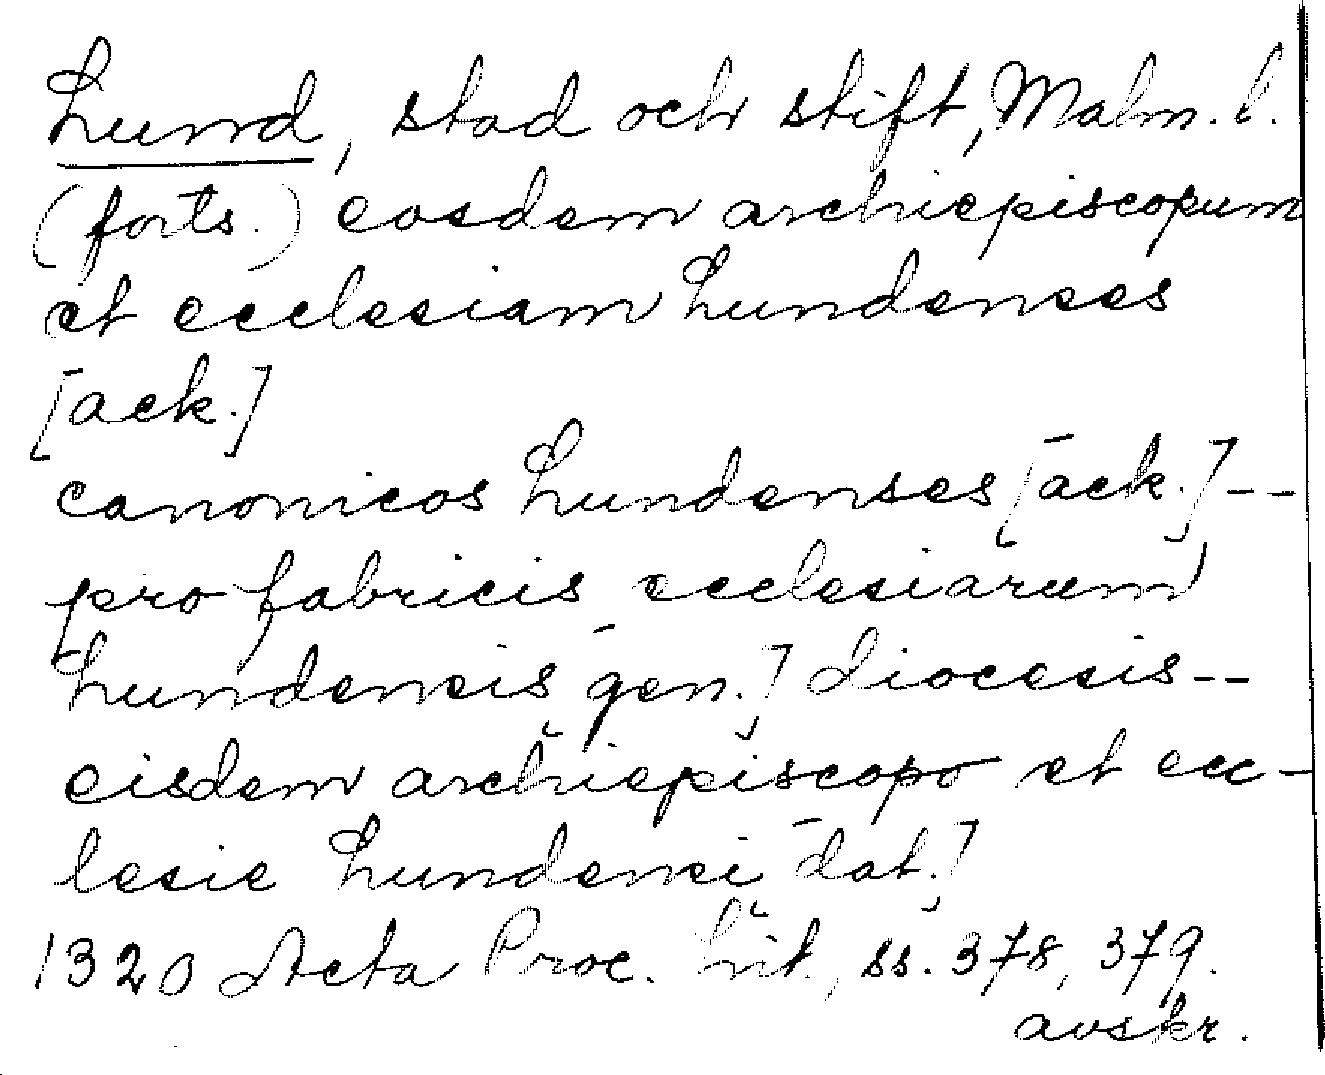 Lund, stad och stift, Malm. l.
(forts.) eosdem archiepiscopum
et ecclesiam Lundenses
[ack.]
canonicos Lundenses [ack.] --
pro fabricis ecclesiarum
Lundensis [gen.] diocesis --
eisdem archiepiscopo et ecc-
lesie Lundensi [dat.]
1320 Acta Proc. Lit., ss. 378, 379.
avskr.